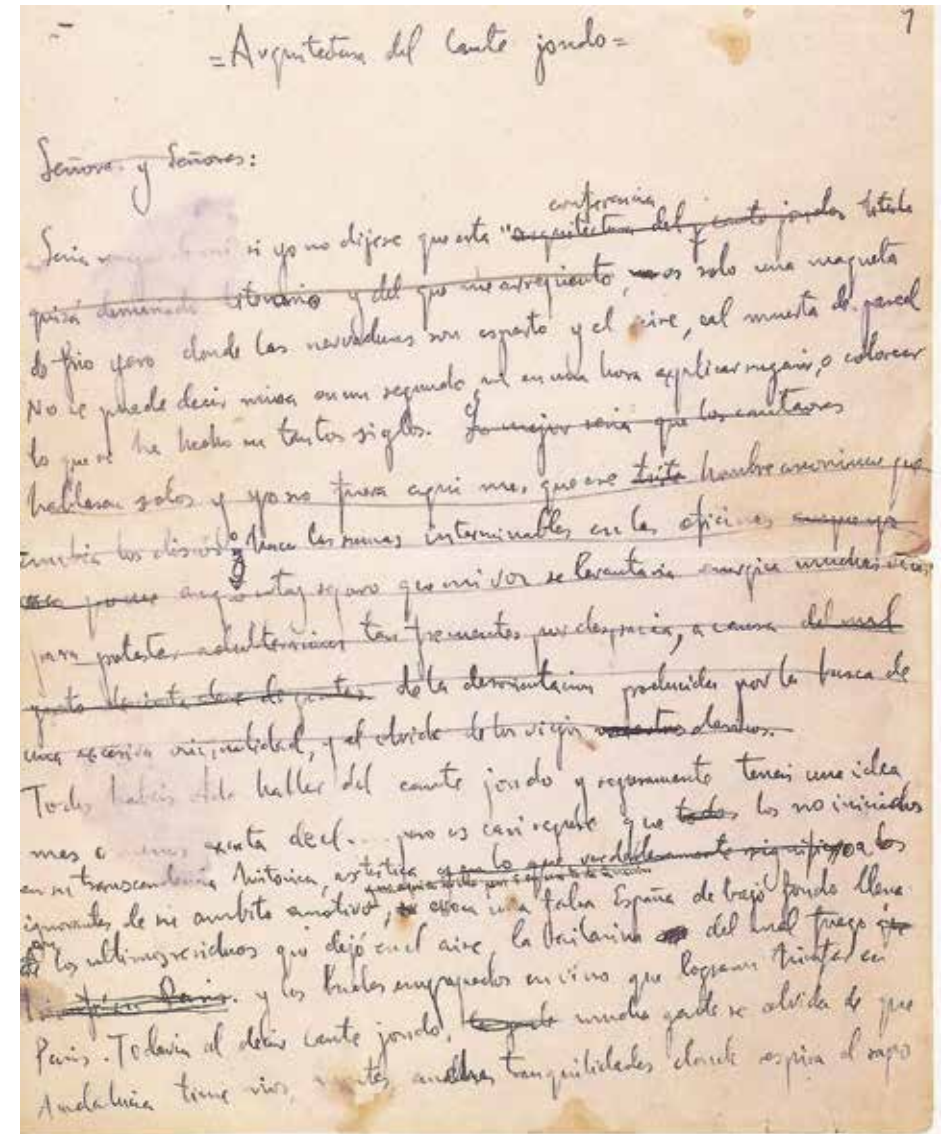 1
= Arquitectura del Cante jondo =
Señoras y Señores:
conferencia
Seria si yo no dijese que esta "arquitectura del cante jondo titulo
quizá demasiado literario y del que me arrepiento, es solo una maqueta
de frio yeso donde las nervaduras son esparto y el aire, cal muerta de pared
No se puede decir nunca en un segundo, ni en una hora explicar sugerir, o colorear
lo que se ha hecho en tantos siglos. Lo mejor seria que los cantaores
hablasen solos y yo no fuera aqui mas que ese triste hombre anonimo que
cambia los discos o hace las sumas interminables en las oficinas aunque yo
seguro que mi voz se levantaria energica muchas veces
para protestar adulteraciones tan frecuentes por desgracia, a causa del mal
gusto de la desorientacion producida por la busca de
una excesiva originalidad, y el olvido de los viejos maestros
Todos habeis oido hablar del cante jondo y seguramente teneis una idea
mas o menos exacta de el.... pero es casi seguro que todos los no iniciados
en su transcendencia historica, artistica o en lo que verdaderamente significa o a los
ignorantes de su ambito emotivo, una falsa España de bajo fondo llena
los ultimos residuos que dejó en el aire, la bailarina del mal fuego que
Paris. y los bucles empapados en vino que lograron triunfar en
Paris. Todavia al decir cante jondo, la gente mucha gente se olvida de que
Andalucia tiene rios, montes anchas tranquilidades donde respira el sapo